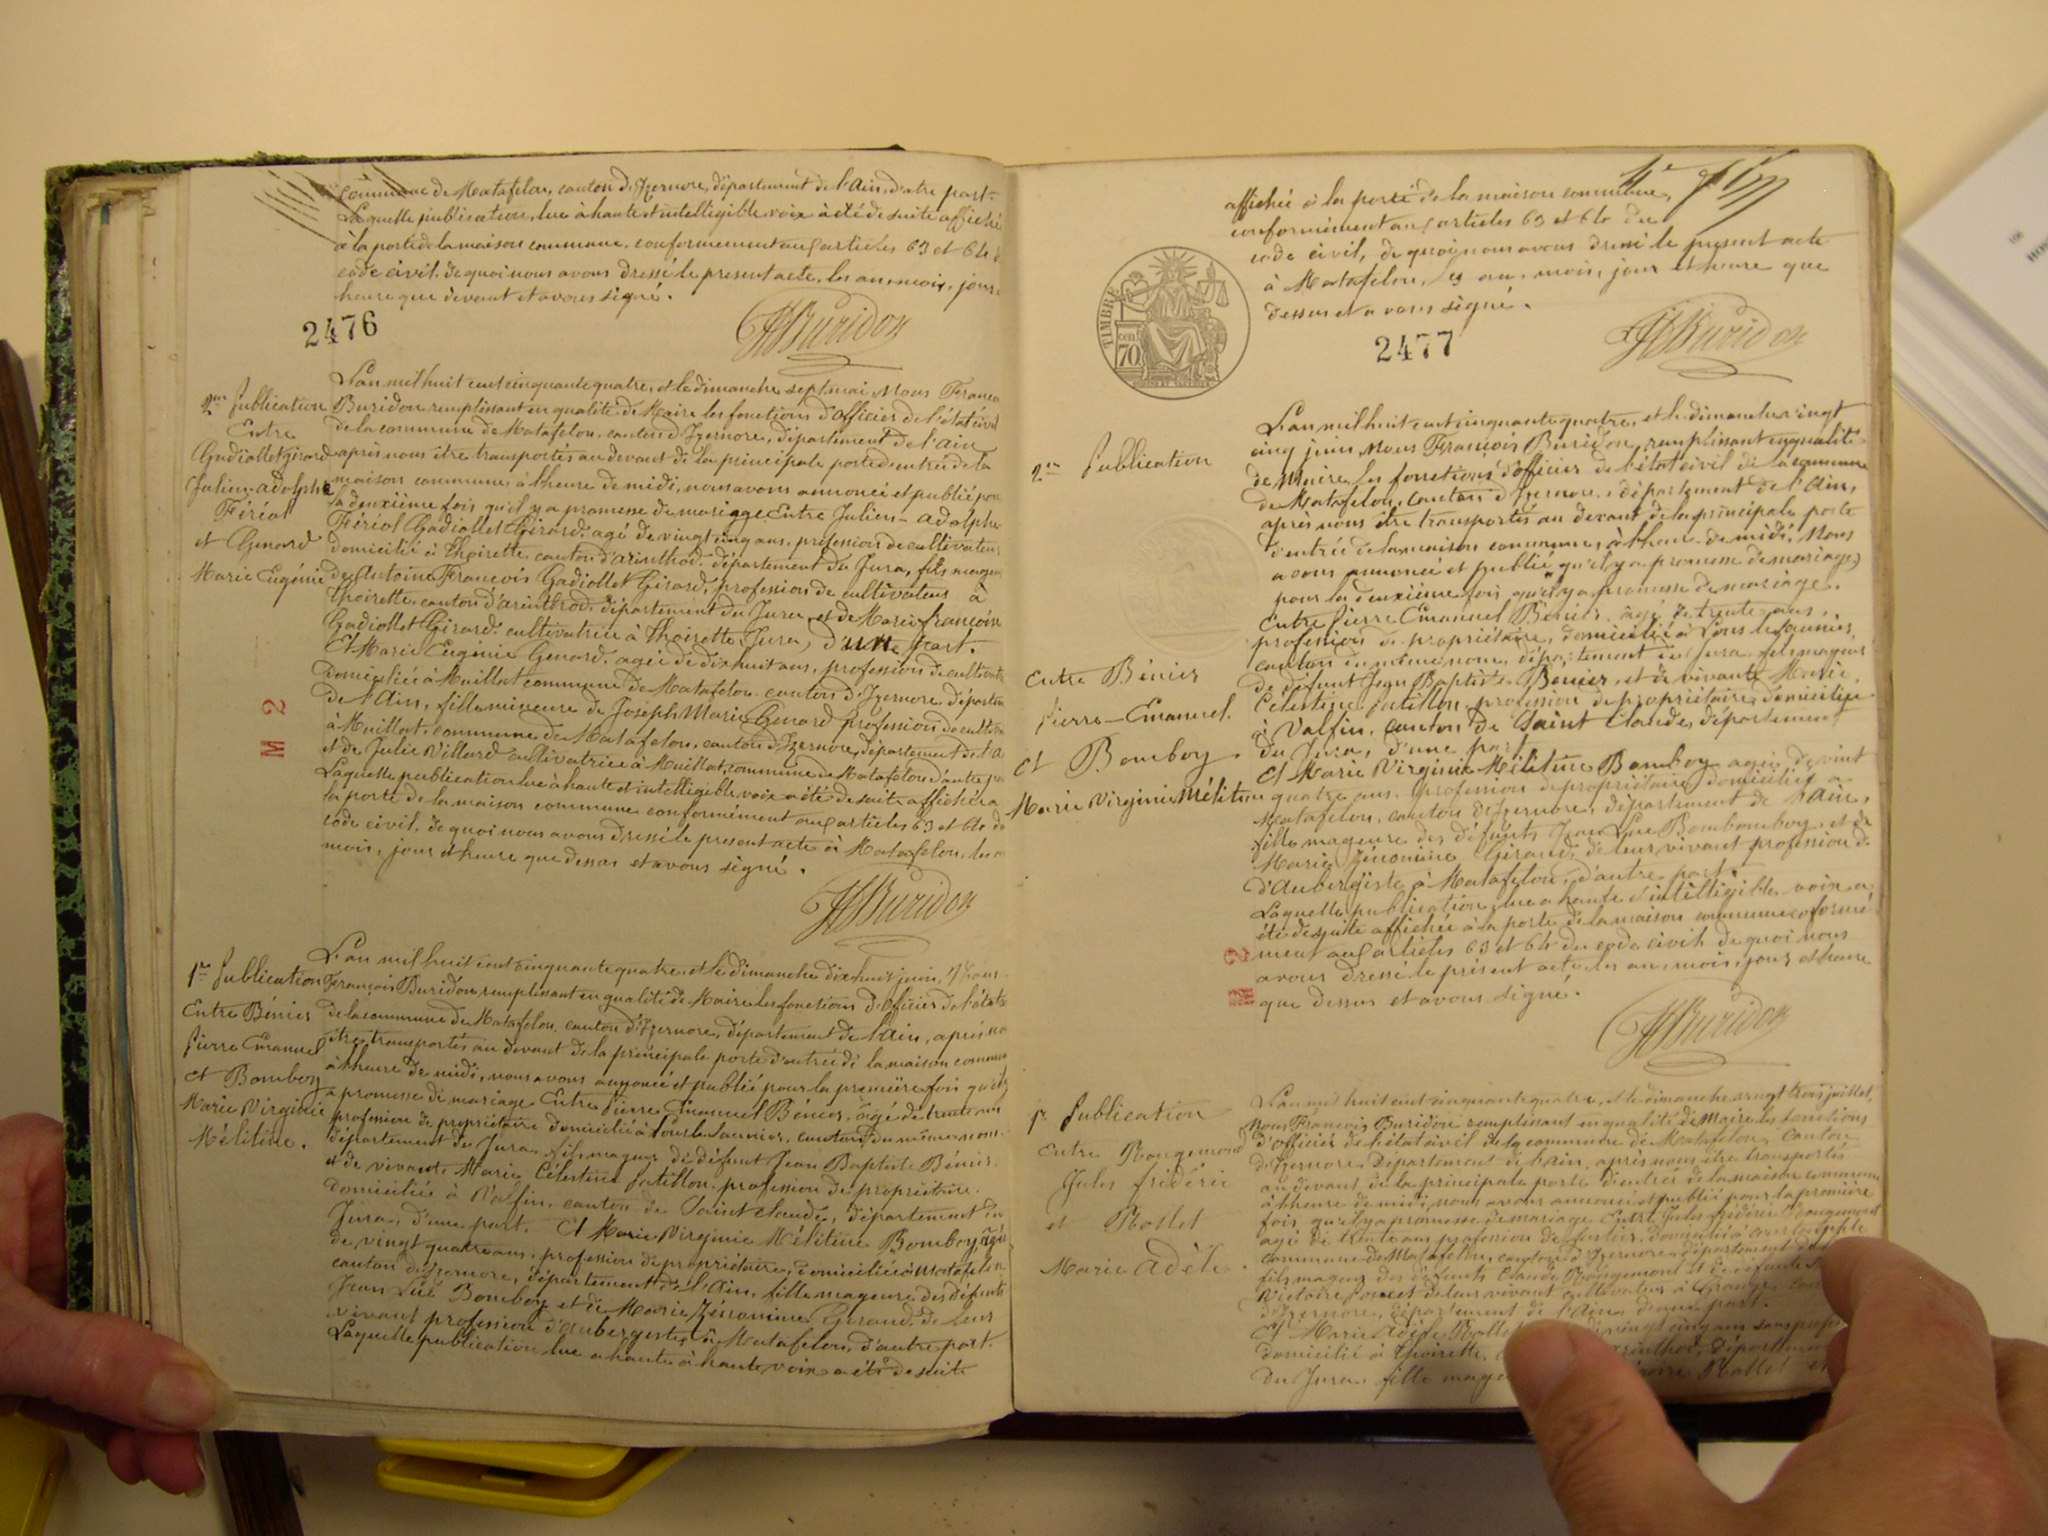 commune de Matafelon, canton d'Izernore, département de l'Ain, d'atre part.
Laquelle publication, lue à haute et intelligible voix à été de suite affichée
à la porte de la maison commune, conformement aux articles 63 et 64 d
code civil, de quoi nous avons dressé le present acte, les an, mois, jour
heure que devant et avons signé.
Buridon
2476
2me Publication
Entre
Gadiollet Girard
Julien-adolphe
Féréol
et Genard
Marie Eugénie
L'an mil huit cent cinquante quatre, et le dimanche sept mai, Nous Franco
Buridon remplissant en qualité de Maire les fonctions d'officier de l'état civil
de la commune de Matafelon, canton d'Izernore, département de l'ain
après nous être transportés au devant de la principale porte d'entrée de la
maison commune, à l'heure de midi, nous avons annoncé et publié pou
la deuxième fois qu'il y a promesse de mariage, Entre Julien-adolphe
Féréol Gadiollet Girard, agé de vingt cinq ans, profession de cultivateur
domicilié à Thoirette, canton d'arinthod, département du Jura, fils mageu
de Antoine François Gadiollet Girard, profession de cultivateur à
Thoirette, canton d'arinthod, département du Jura, et de Marie françoise
Gadiollet Girard, cultivatrice à Thoirette, Jura, d'une part.
Et Marie Eugénie Genard, agée de dix huit ans, profession de cultivat
Domiciliée à Maillat commune de Matafelon, canton d'Izernore, départem
de l'Ain, fille mineure de Joseph Marie Genard profession de cultiva
à Maillat, commune de Matafelon, canton d'Izernore, département de l'A
et de Julie Villard cultivatrice à Maillat, commune de Matafelon d'autre pa
Laquelle publication lue à haute et intelligible voix a été de suite affichée a
la porte de la maison commune conformément aux articles 63 et 64 du
code civil, de quoi nous avons dressé le present acte à Matafelon, les a
mois, jour et heure que dessus et avons signé.
M 2
Buridon
1re Publication
Entre Bénier
Pierre Emanuel
et Bomboy
Marie Virginie
Mélitine.
L'an mil huit cent cinquante quatre, et le dimanche dix huit juin, Nous
François Buridon, remplissant en qualité de Maire les fonctions d'officier de l'état
de la commune de Matafelon, canton d'Izernore, département de l'Ain, après no
être transportés au devant de la principale porte d'entrée de la maison commun
à l'heure de midi, nous avons annoncé et publié pour la première fois qu'il y
a promesse de mariage Entre Pierre Emanuel Bénier, agé de trente ans
profession de propriétaire domicilié à Lons le Saunier, canton du même nom
département du Jura, fils mageur de défunt Jean Baptiste Bénier,
et de vivante Marie Célestine Patillon, profession de propriétaire,
domiciliée à Valfin, canton de Saint Claude, département du
Jura, d'une part. Et Marie Virginie Mélitine Bomboy, agée
de vingt quatre ans, profession de propriétaire, domiciliée à Matafelon
canton d'Izernore, département de l'Ain, fille mageure des défunts
Jean Luc Bomboy et de Marie Géronime Geraud, de leur
vivant profession d'aubergiste, à Matafelon, d'autre part.
Laquelle publication lue a haute à haute voix a été de suite
affichée à la porte de la maison commune,
conformément aux articles 63 et 64 du
code civil, de quoi nous avons dressé le present acte
à Matafelon, les an, mois, jour et heure que
dessus et avons signé.
TIMBRE
70
2477
Buridon
2me Publication
Entre Bénier
Pierre-Emanuel.
et Bomboy
Marie Virginie Mélitine
L'an mil huit cent cinquante quatre, et le dimanche vingt
cinq juin, Nous François Buridon, remplissant en qualité
de Maire, les fonctions d'officier de l'état civil de la commune
de Matafelon, canton d'Izernore, département de l'Ain,
après nous être transportés au devant de la principale porte
d'entrée de la maison commune, à l'heure de midi, Nous
avons annoncé et publié qu'il y a promesse de mariage
pour la deuxième fois qu'il y a promesse de mariage.
Entre Pierre Emanuel Bénier, agé de trente ans,
profession de propriétaire, domicilié à Lons le Saunier,
canton du même nom, département du Jura fils mageur
de défunt Jean Baptiste Benier, et de vivante Marie
Célestine Patillon, profession de propriétaire, domiciliée
à Valfin, canton de Saint Claude, département
du Jura, d'une part.
Et Marie Virginie Mélitine Bomboy agée de vint
quatre ans, profession de propriétaire, domiciliée a
Matafelon, canton d'Izernore, département de l'Ain,
fille mageure des défunts Jean Luc Bombomboy, et de
Marie Jéronime Géraud, de leur vivant profession de
d'Aubergiste à Matafelon, d'autre part.
Laquelle publication, lue a haute et intelligible voix a
été de suite affichée à la porte de la maison commune conformé
ment aux articles 63 et 64 du code civil, de quoi nous
avons dressé le présent acte les an, mois, jour et heure
que dessus et avons signé.
M 2
Buridon
1re Publication
Entre Rougemond
Jules frédéric
et Rollet
Marie Adèle.
L'an mil huit cent cinquante quatre, et le dimanche vingt trois juillet,
Nous François Buridon remplissant en qualité de Maire les fonctions
d'officier de l'état civil de la commune de Matafelon, canton
d'Izernore, Département de l'Ain, après nous être transportés
au devant de la principale porte d'entrée de la maison commune
à l'heure de midi, nous avons annoncé et publié pour la première
fois, qu'il y a promesse de mariage. Entre Jules frédéric Rougemont
agé de trente ans profession de
commune de Matafelon, canton d'Izernore, département
fils mageur des défunts Claude Rougemont et de défunte
Victoire de leur vivant cultivateur à Grange,
d'Izernore, département de l'Ain, d'une part.
Et Marie Adèle Rollet vingt cinq ans sans profess
domicilié à Thoirette, arinthod, départemen
du Jura, fille mage Rollet et